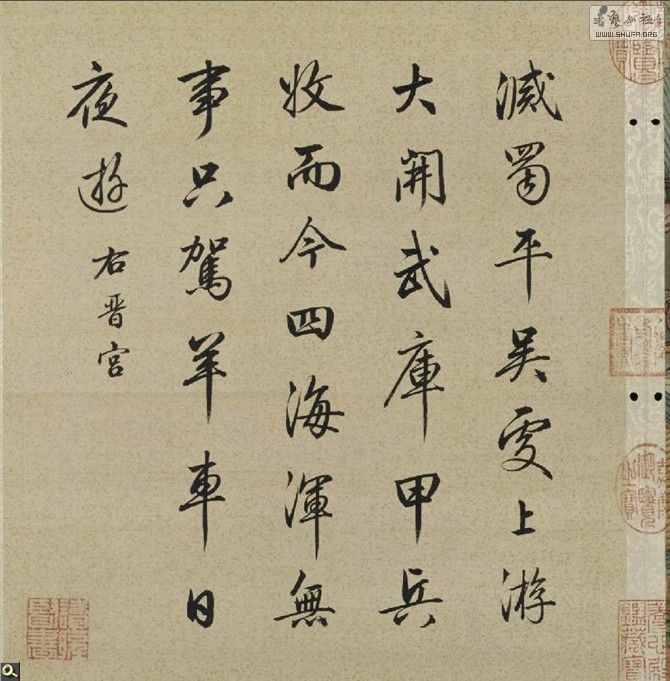 滅蜀平吴上游
大開武庫甲兵
收而今四海渾無
事只駕羊車日
夜遊 右晉宮
書藝公社
WWW.SHUFA.ORG